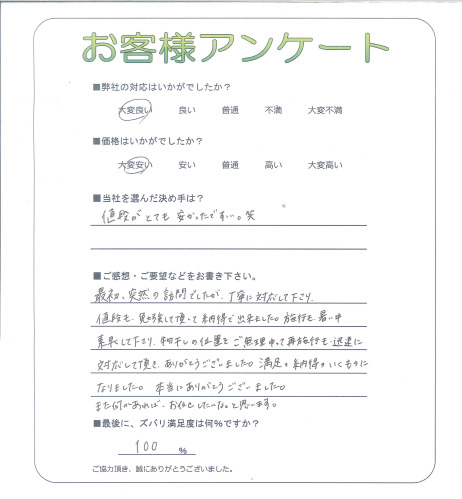 お客様アンケート
■弊社の対応はいかがでしたか?
大変良い 良い 普通 不満 大変不満
■価格はいかがでしたか?
大変安い 安い 普通 高い 大変高い
■当社を選んだ決め手は?
値段がとても安かったですい。笑
■ご感想・ご要望などをお書き下さい。
最初、突然の訪問でしたが、丁寧に対応して下り、
値段も、見積して頂って納得で出来ました。施行も、暑い中
素早くして下り、物干しの位置をご無理申って再施行も迅速に
対応して頂き、ありがとうございました。満足。納得。いくものに
なりました。本当にありがとうございました。
また何かあれば、お任せしたいな。と思います。
■最後に、ズバリ満足度は何%ですか?
100 %
ご協力頂き、誠にありがとうございました。